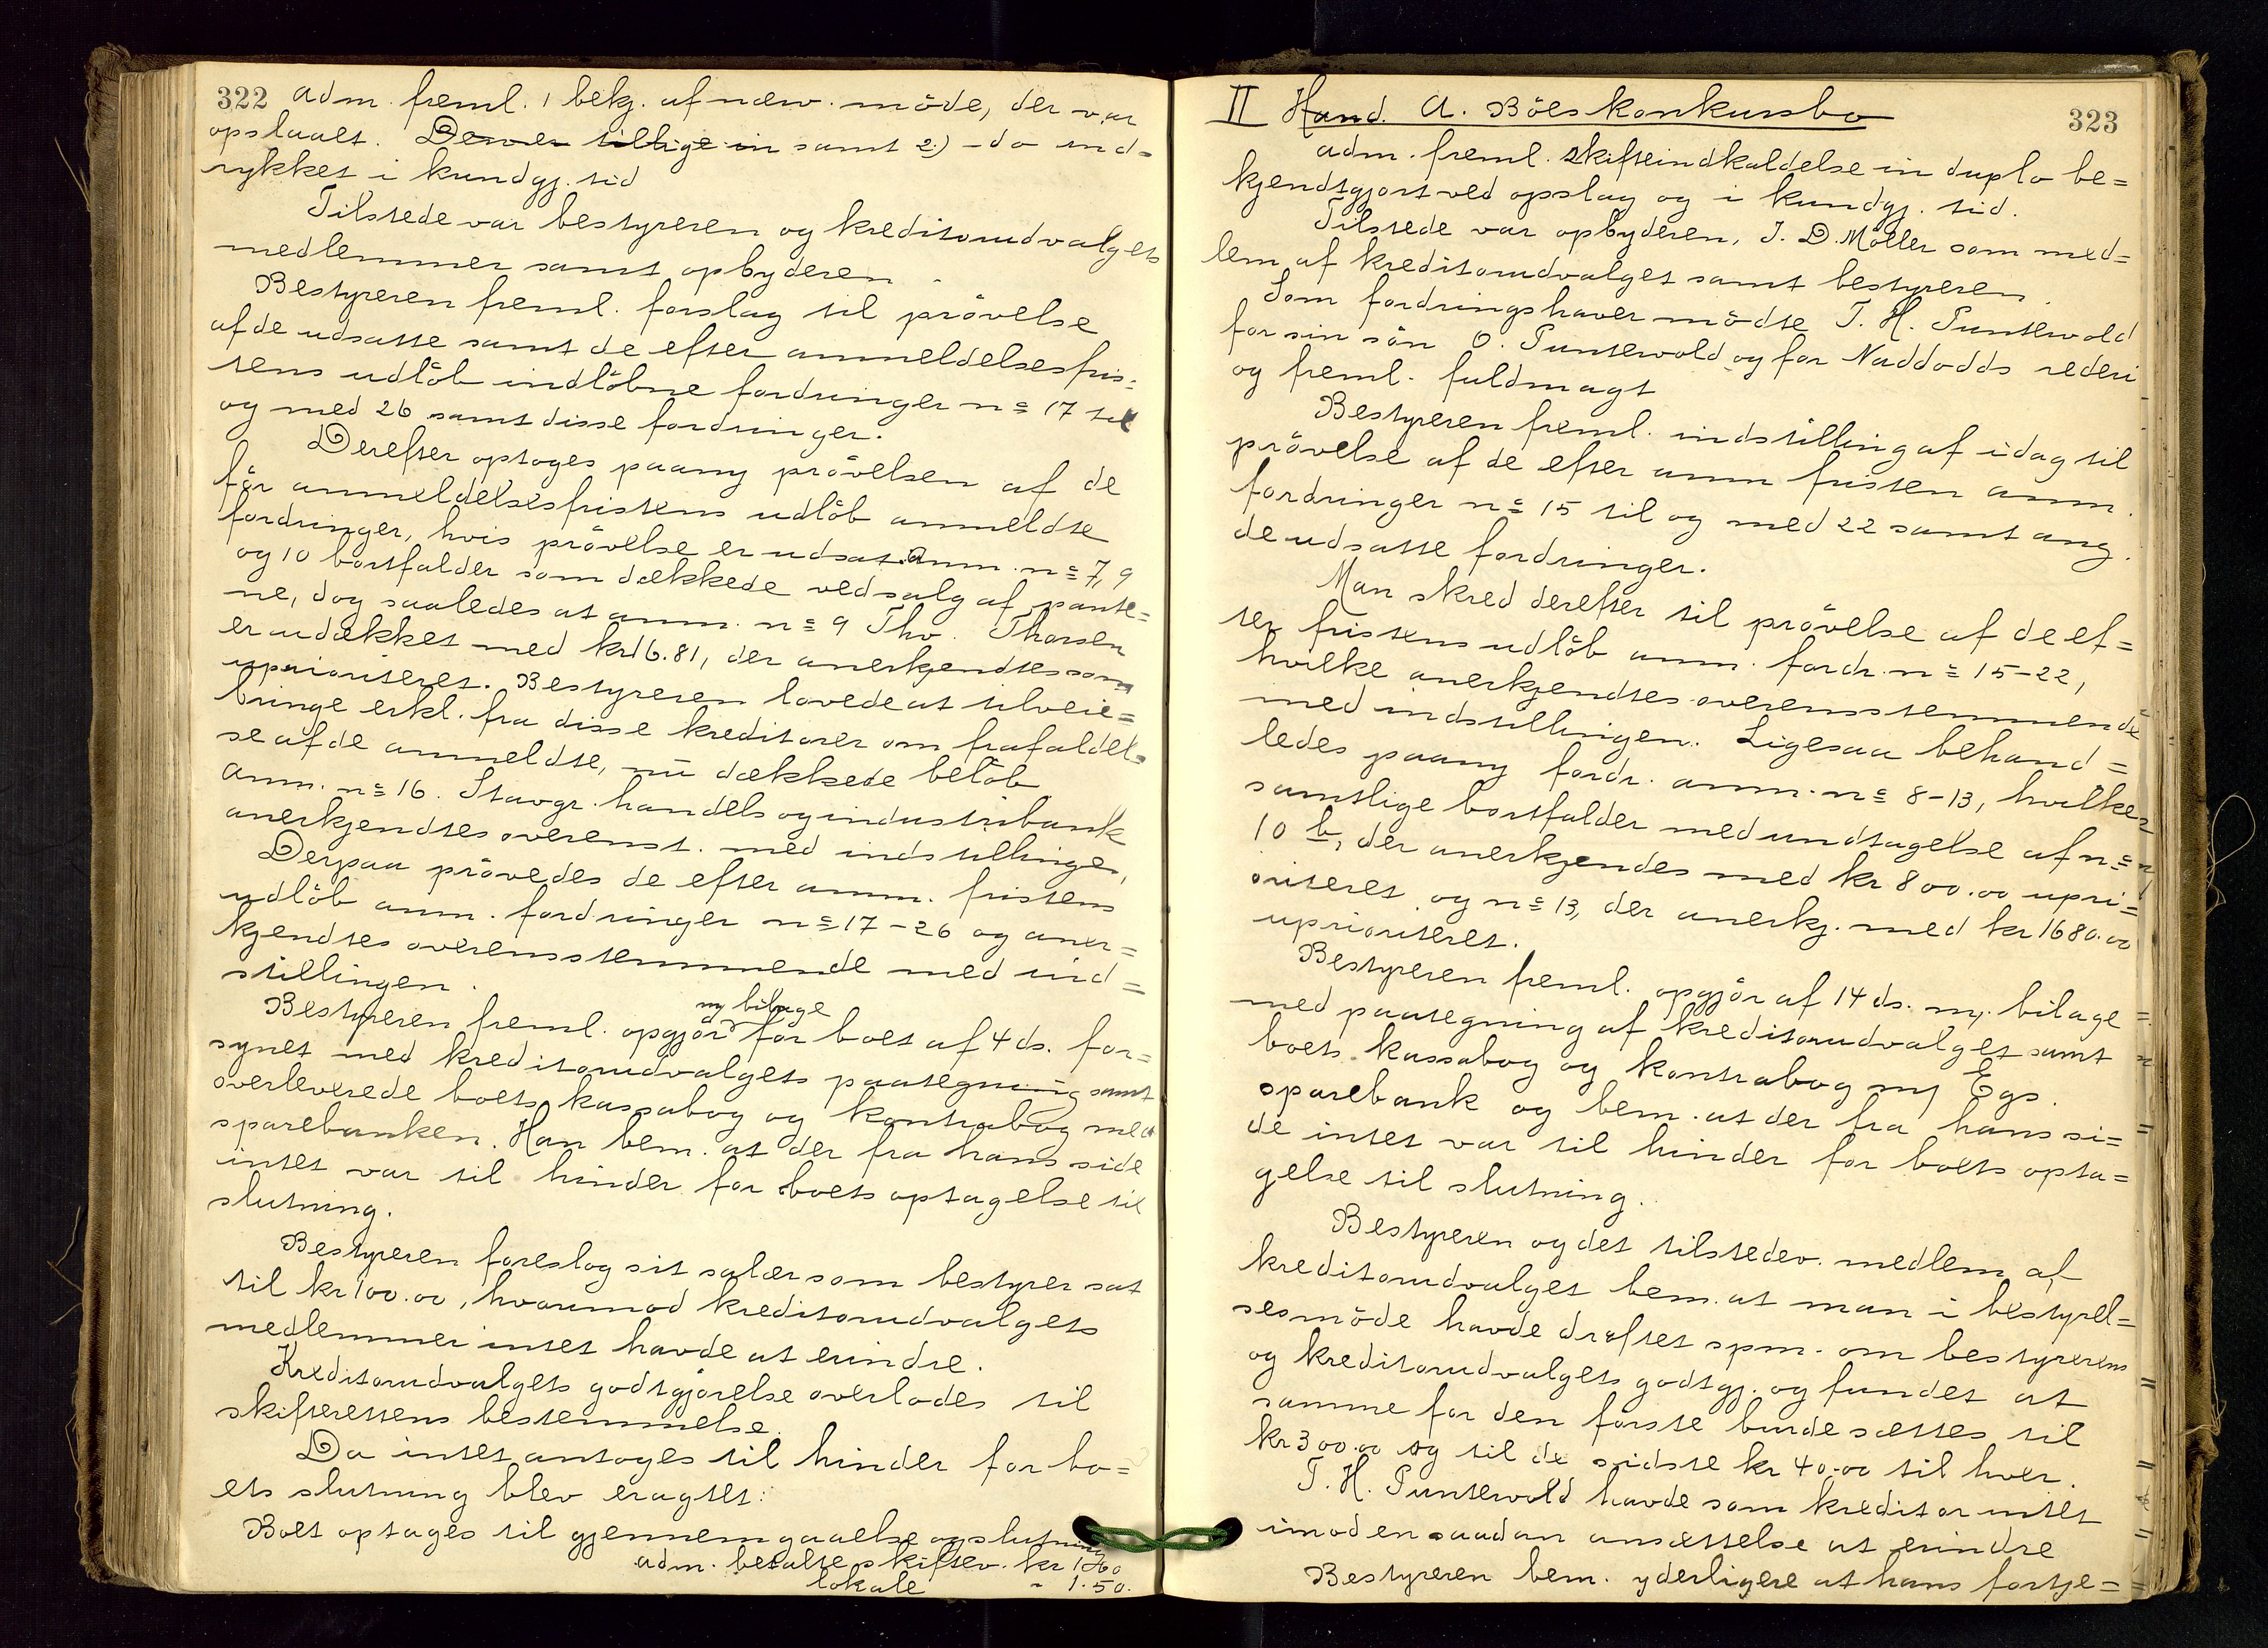 322 adm. freml. 1 bekj. af næv. möde, der var
opslaaet. Denver tillige in samt 2) -do ind=
rykket i kundgj. tid
Tilstede var bestyreren og kreditorudvalgets
medlemmer samt opbyderen.
Bestyreren freml. forslag til prövelse
af de udsatte samt de efter anmeldelsesfris=
tens udlöb indlöbne fordringer no 17 til
og med 26 samt disse fordringer.
Derefter optoges paany prövelsen af de
för anmeldelsesfristens udlöb anmeldte
fordringer, hvis prövelse er udsat. Anm. no 7, 9
og 10 bortfalder som dækkede ved salg af pante=
ne, dog saaledes at anm. no 9 Tho. Thorsen
er udækket med kr 16.81, der anerkjendtes som
uprioriteret. Bestyreren lovede at tilveie=
bringe erkl. fra disse kreditorer om frafaldel=
se af de anmeldte, nu dækkede belöb
Anm. no 16. Stavgr. handels og industribank
anerkjendtes overenst. med indstillingen,
Derpaa prövedes de efter anm. fristens
udlöb anm. fordringer no 17-26 og aner=
kjendtes overensstemmende med ind=
stillingen.
m/ bilage
Bestyreren freml. opgjör for boet af 4 ds. for=
synet med kreditorudvalgets paategning samt
overleverede boets kassabog og kontrabog med
sparebanken. Han bem. at der fra hans side
intet var til hinder for boets optagelse til
slutning.
Bestyreren foreslog sit salær som bestyrer sat
til kr 100.00, hvorimod kreditorudvalgets
medlemmer intet havde at erindre.
Kreditorudvalgets godtgjörelse overlodes til
skifterettens bestemmelse.
Da intet antoges til hinder for bo=
ets slutning blev eragtet:
Boet optages til gjennemgaaelse og slutning
adm. betalte skiftev. kr
lokale - 1.50.
II Hand. A. Böes konkursbo 323
adm. freml. skifteindkaldelse in duplo be=
kjendtgjort ved opslag og i kundgj. tid.
Tilstede var opbyderen, J. D. Möller som med=
lem af kreditorudvalget samt bestyreren.
Som fordringshaver mödte T. H. Puntervold
for sin sön O. Puntervold og for Naddodds rederi
og freml. fuldmagt
Bestyreren freml. indstilling af idag til
prövelse af de efter anm fristen anm.
fordringer no 15 til og med 22 samt ang.
de udsatte fordringer.
Man skred derefter til prövelse af de ef=
ter fristens udlöb anm. fordr. no 15-22,
hvilke anerkjendtes overensstemmende
med indstillingen. Ligesaa behand=
ledes paany fordr. anm. no 8-13, hvilke
samtlige bortfalder med undtagelse af no
10 b, der anerkjendes med kr 800.00 upri=
oriteret og no 13, der anerkj. med kr 1680.00
uprioriteret.
Bestyreren freml. opgjör af 14 ds. m/ bilage
med paategning af kreditorudvalget samt
boets kassabog og kontrabog m/ Egs.
sparebank og bem. at der fra hans si=
de intet var til hinder for boets opta=
gelse til slutning.
Bestyreren og det tilstedev. medlem af
kreditorudvalget bem. at man i bestyrel=
sesmöde havde dröftet spm. om bestyrerens
og kreditorudvalgets godtgj. og fundet at
samme for den förste burde sættes til
kr 300.00 og til de sidste kr 40.00 til hver.
T. H. Puntervold havde som kreditor intet
imod en saadan ansættelse at erindre
Bestyreren bem. yderligere at hans fortje=